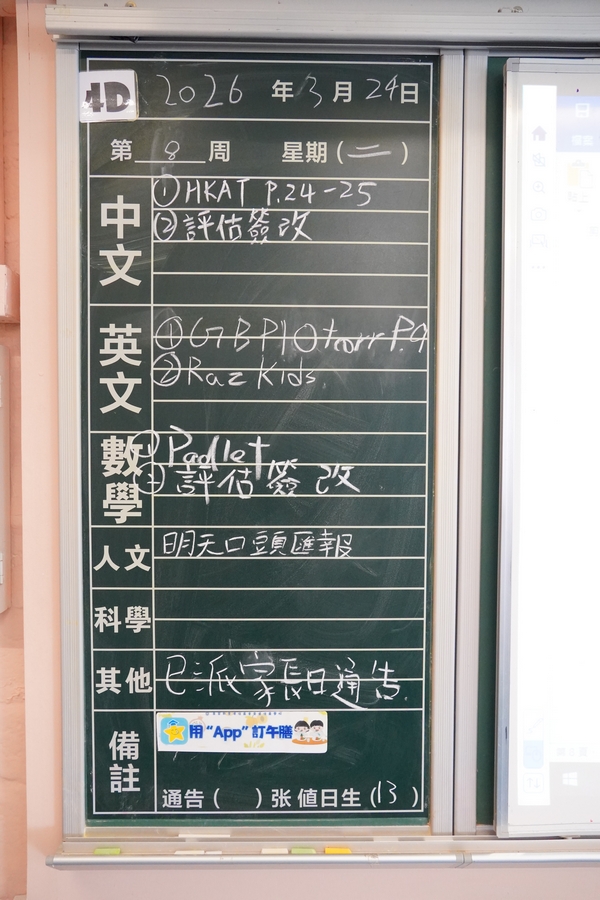 4D 2026 年 3 月 24 日
第 8 周 星期 (二)
中文
① HKAT P.24-25
② 評估簽改
英文
① GBP10 P.9
② Raz Kids
數學
① Padlet
② 評估簽改
人文
明天口頭匯報
科學
其他
已派家長日通告
備註
用“App”訂午膳
通告 ( ) 张 值日生 (13)